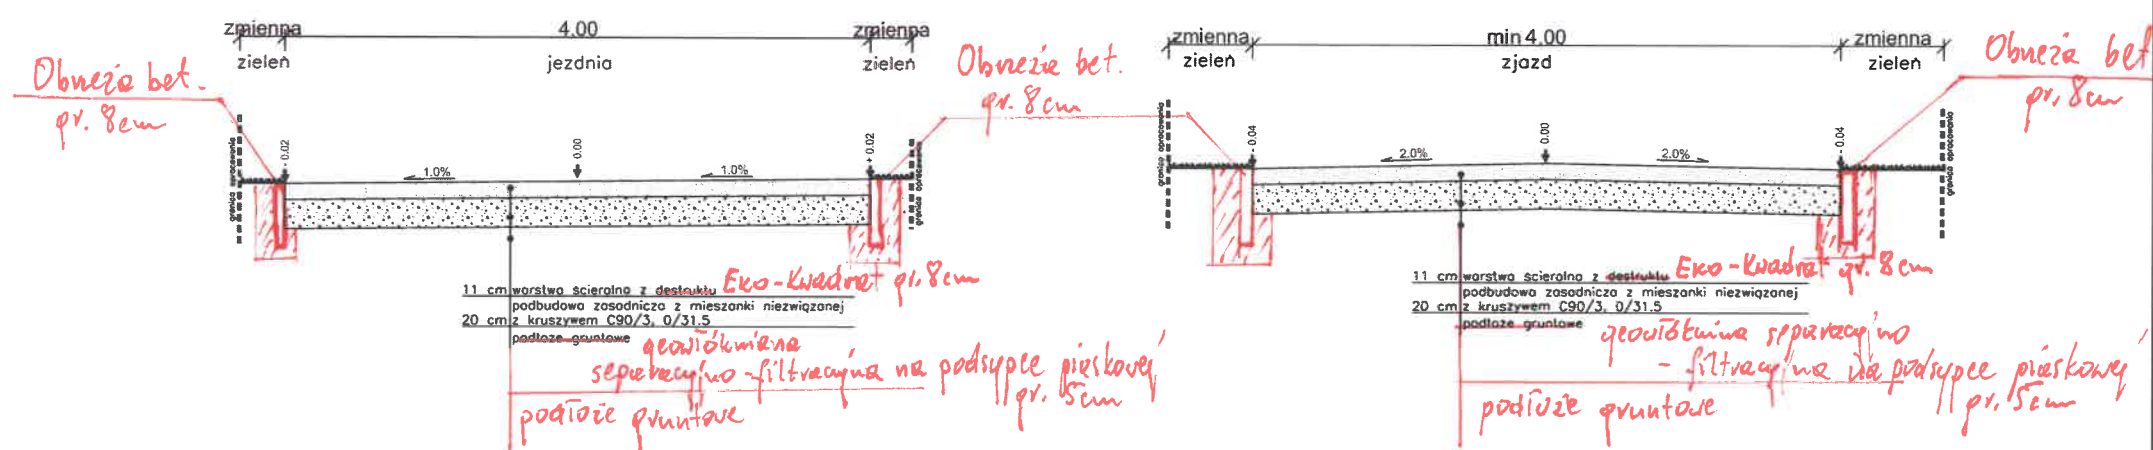 zmienna 4.00 zmienna
zieleń jezdnia zieleń
Obrzeża bet.
gr. 8cm
Obrzeża bet.
gr. 8cm
granica opracowania
- 0.02
0.00
+ 0.02
granica opracowania
1.0% 1.0%
11 cm warstwa ścieralna z destruktu Eko-Kwadrat gr. 8cm
podbudowa zasadnicza z mieszanki niezwiązanej
20 cm z kruszywem C90/3, 0/31.5
podłoże gruntowe geowłóknina
separacyjno-filtracyjna na podsypce piaskowej
gr. 5cm
podłoże gruntowe
zmienna min 4.00 zmienna
zieleń zjazd zieleń
Obrzeża bet
gr. 8cm
granica opracowania
- 0.04
0.00
- 0.04
granica opracowania
2.0% 2.0%
11 cm warstwa ścieralna z destruktu Eko-Kwadrat gr. 8cm
podbudowa zasadnicza z mieszanki niezwiązanej
20 cm z kruszywem C90/3, 0/31.5
podłoże gruntowe geowłóknina separacyjno
- filtracyjna na podsypce piaskowej
gr. 5cm
podłoże gruntowe